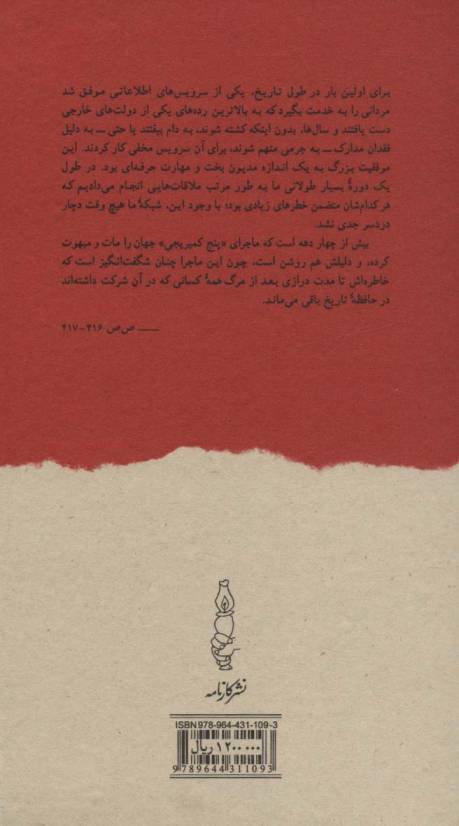 برای اولین بار در طول تاریخ، یکی از سرویس‌های اطلاعاتی موفق شد
مردانی را به خدمت بگیرد که به بالاترین رده‌های یکی از دولت‌های خارجی
دست یافتند و سال‌ها، بدون اینکه کشته شوند، به دام بیفتند یا حتی ــ به دلیل
فقدان مدارک ــ به جرمی متهم شوند، برای آن سرویس مخفی کار کردند. این
موفقیت بزرگ به یک اندازه مدیون بخت و مهارت حرفه‌ای بود. در طول
یک دورهٔ بسیار طولانی ما به طور مرتب ملاقات‌هایی انجام می‌دادیم که
هر کدام‌شان متضمن خطرهای زیادی بود؛ با وجود این، شبکهٔ ما هیچ وقت دچار
دردسر جدی نشد.
بیش از چهار دهه است که ماجرای «پنج کمبریجی» جهان را مات و مبهوت
کرده، و دلیلش هم روشن است، چون این ماجرا چنان شگفت‌انگیز است که
خاطره‌اش تا مدت درازی بعد از مرگ همهٔ کسانی که در آن شرکت داشته‌اند
در حافظهٔ تاریخ باقی می‌ماند.
ــــ صص ۴۱۶-۴۱۷
نشر کارنامه
ISBN 978-964-431-109-3
۱۲۰۰۰۰۰ ریال
9 789644 311093